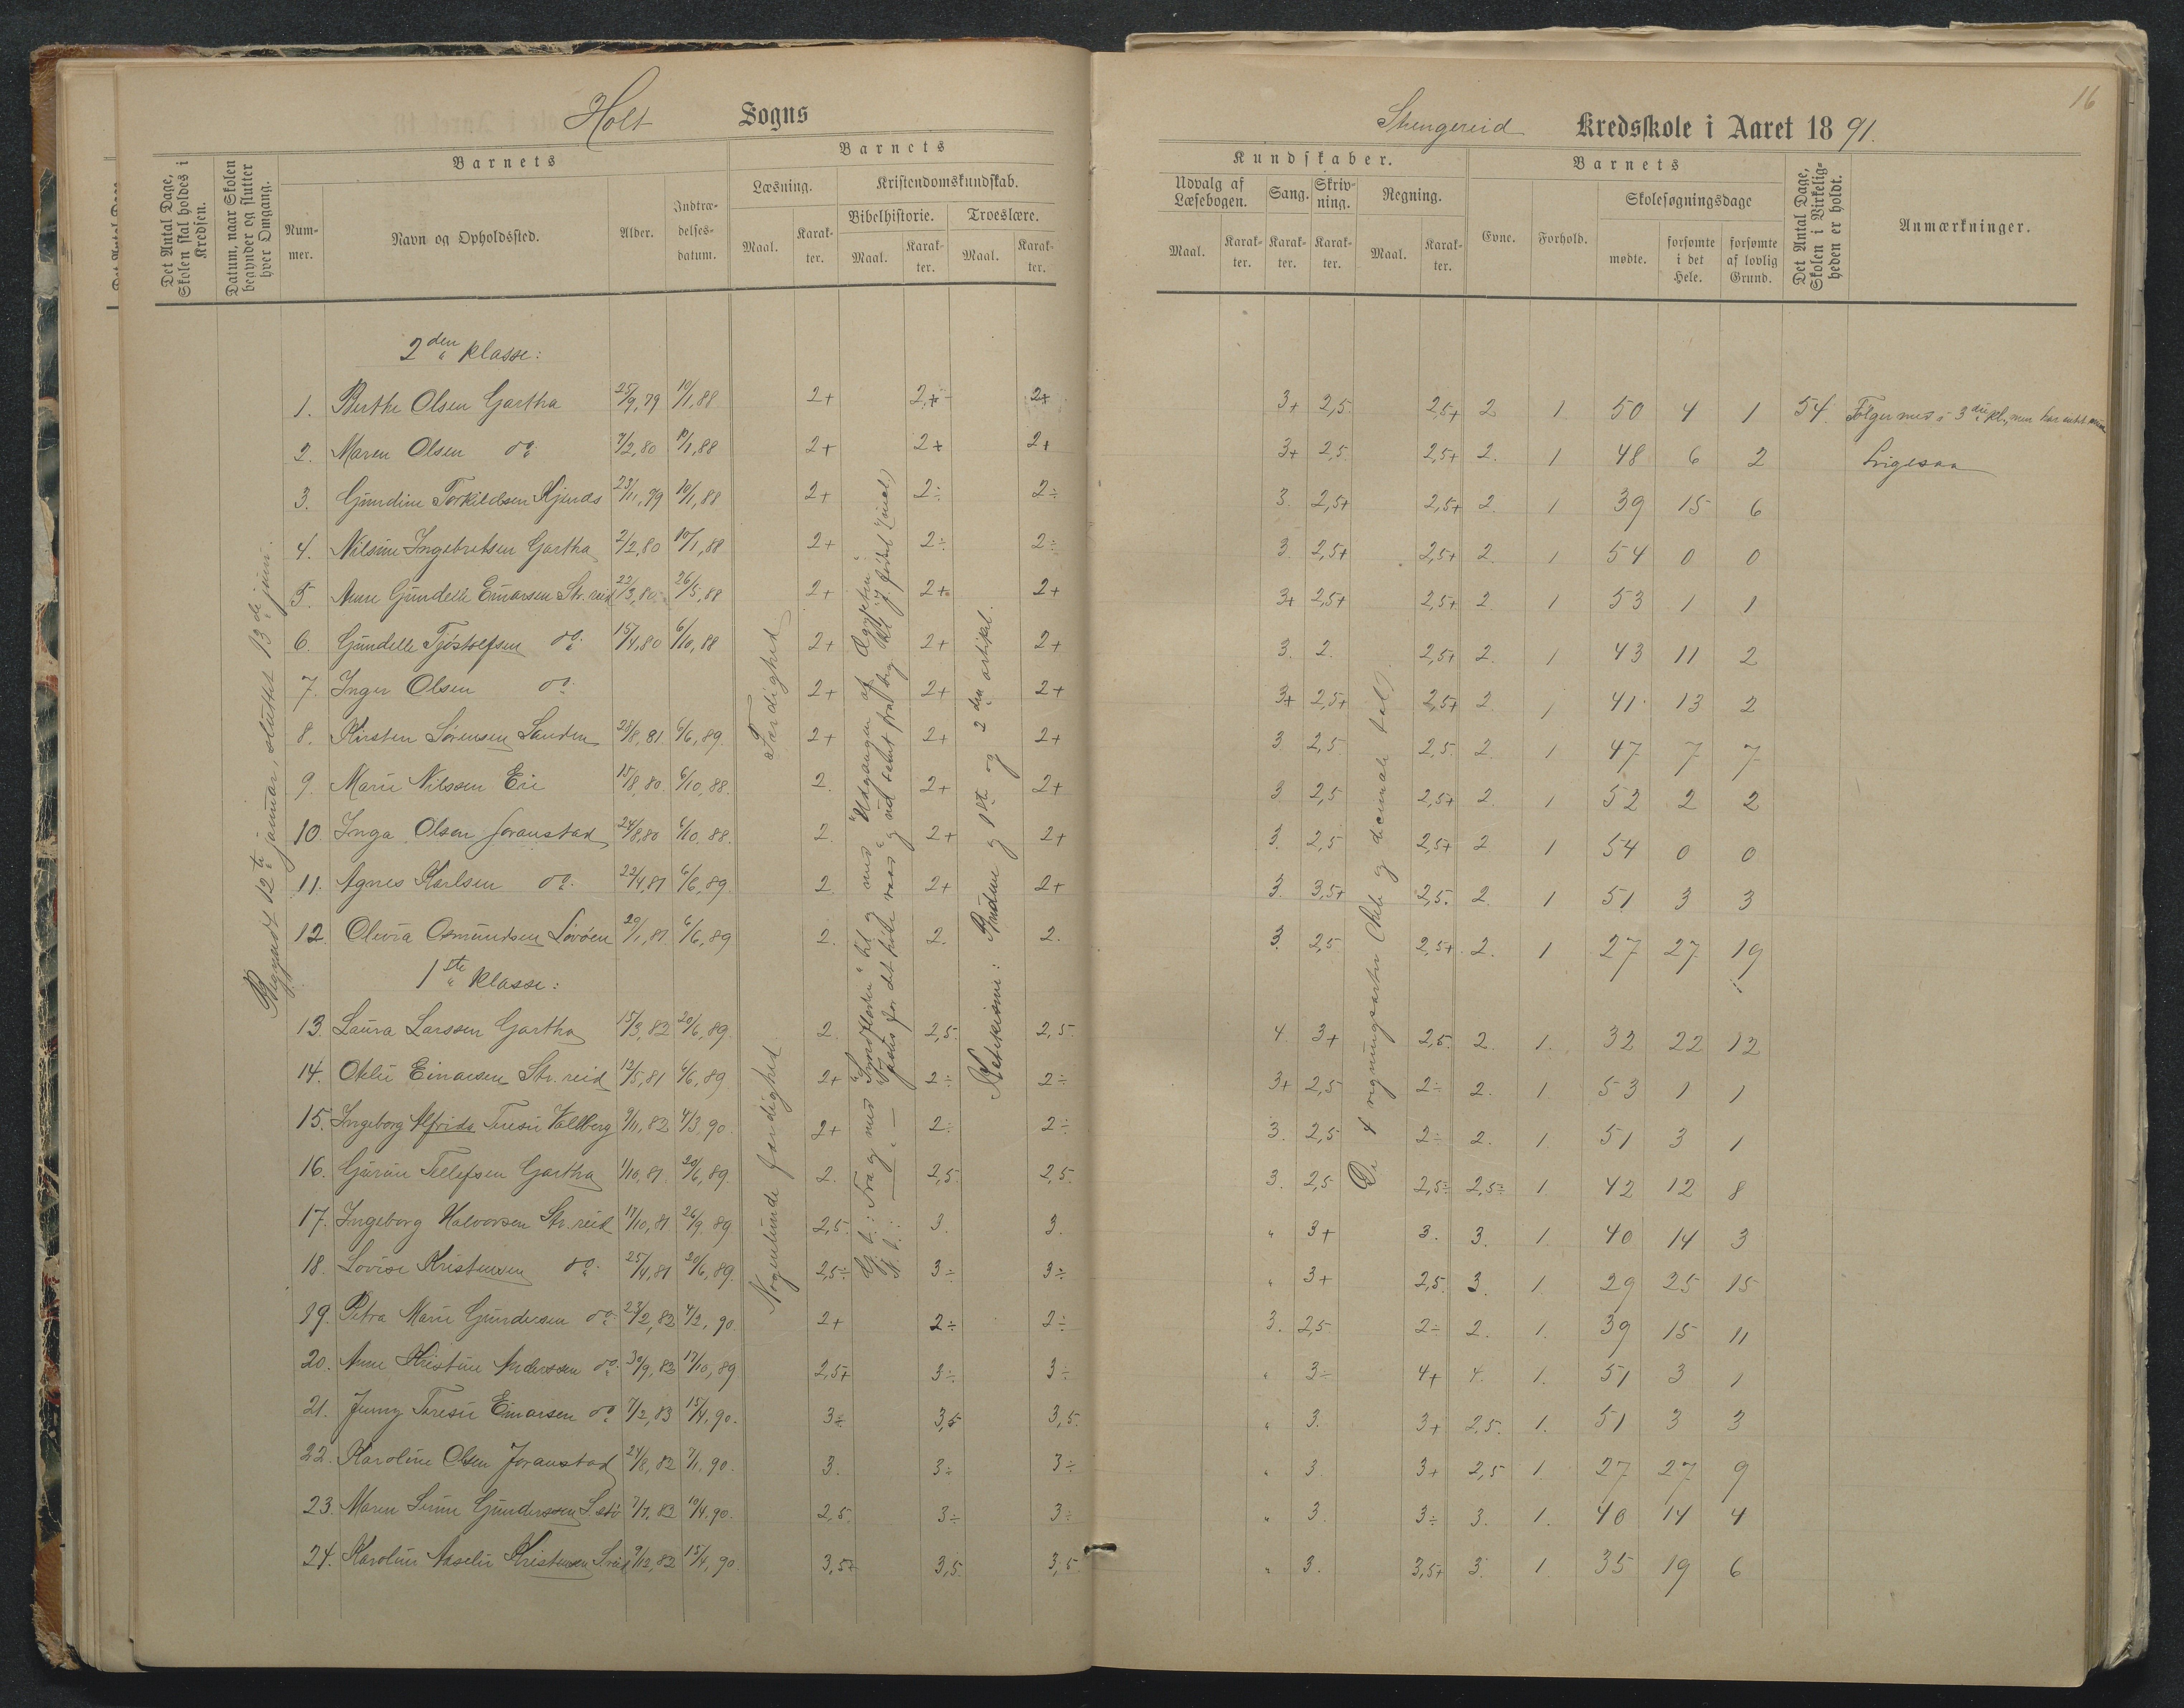 Holt Sogns
Det Antal Dage, Skolen skal holdes i Kredsen.
Datum, naar Skolen begynder og slutter hver Omgang.
Barnets
Nummer.
Navn og Opholdssted.
Alder.
Indtrædelsesdatum.
Barnets
Læsning.
Kristendomskundskab.
Bibelhistorie.
Troeslære.
Maal.
Karakter.
Maal.
Karakter.
Maal.
Karakter.
Begyndt 12te januar, sluttet 13de juni.
2den klasse:
1. Berthe Olsen Gartha 25/9,79 10/1,88 2+ 2+ 2+
2. Maren Olsen do 7/2,80 10/1,88 2+ 2+ 2+
3. Gundine Torkildsen 23/11,79 10/1,88 2+ 2÷ 2÷
4. Nilsine Ingebretsen Gartha 2/2,80 10/1,88 2+ 2÷ 2÷
5. Anne Gundelle Einarsen Str.reid 22/3,80 26/5,88 2+ 2+ 2+
6. Gundelle Tjöstolfsen do 15/4,80 6/10,88 2+ 2+ 2+
7. Inger Olsen do 2+ 2+ 2+
8. Kirsten Sørensen Sanden 28/8,81 6/6,89. 2+ 2+ 2+
9. Marie Nilssen Eie 15/8,80 6/10,88. 2. 2+ 2+
10. Inga Olsen Joranstad 24/8,80 6/10,88. 2. 2+ 2+
11. Agnes Karlsen do 22/4,81 6/6,89. 2 2+ 2+
12. Olevia Osmundsen Lövöen 20/1,81 6/6,89 2. 2. 2.
Færdighed
1ste klasse:
13. Laura Larssen Gartha 15/3,82 20/6,89. 2. 2,5. 2,5.
14. Otelie Einarsen Str.reid 12/5,81 6/6,89 2+ 2÷ 2÷
15. Ingeborg Alfrida Teresie Vallberg 9/11,82 4/3 90. 2+ 2÷ 2÷
16. Gurine Tellefsen Gartha 1/10,81. 20/6,89. 2. 2,5. 2,5.
17. Ingeborg Halvorsen Str.reid 17/10,81. 26/9.89. 2,5. 3. 3.
18. Lovise Kristensen do 25/4,81 20/6,89. 2,5÷ 3÷ 3÷
19. Petra Marie Gundersen do 23/2,82 4/2,90. 2+ 2÷ 2÷
20. Anne Kristine Anderssen do 30/9,82 17/10,89 2,5+ 3÷ 3÷
21. Jenny Teresie Einarsen do 7/2,83 15/4,90. 3÷ 3,5 3,5.
22. Karoline Olsen Joranstad 24/8,82 7/1.90. 3. 3÷ 3÷
23. Maren Sirine Gunderssen 7/7,82 10/4.90. 2,5. 3÷ 3÷
24. Karoline Aaselie Kristensen 9/12,82 15/4,90. 3,5+ 3,5. 3,5
Nogenlunde færdighed.
Katekismi: Budene og 1ste og 2den artikel.
16
Strengereid Kredsskole i Aaret 1891.
Kundskaber.
Udvalg af Læsebogen.
Sang.
Skrivning.
Regning.
Maal.
Karakter.
Karakter.
Karakter.
Maal.
Karakter.
Barnets
Evne.
Forhold.
Skolesøgningsdage
mødte.
forsømte i det Hele.
forsømte af lovlig Grund.
Det Antal Dage, Skolen i Virkeligheden er holdt.
Anmærkninger.
De 4 regningsarter (hele og decimale tal).
3+ 2,5. 2,5+ 2 1. 50 4 1 54. Følger med i 3die kl.,
3+ 2,5 2,5+ 2. 1 48 6 2 Ligesaa
3. 2,5+ 2,5+ 2. 1 39 15 6
3. 2,5+ 2,5+ 2. 1 54 0 0
3+ 2,5+ 2,5+ 2 1 53 1 1
3. 2. 2,5+ 2. 1 43 11 2
3+ 2,5+ 2,5+ 2 1 41 13 2
3 2,5. 2,5. 2 1 47 7 7
3 2,5 2,5+ 2 1 52 2 2
3. 2,5 2,5+ 2 1 54 0 0
3. 3,5+ 2,5. 2. 1 51 3 3
3 2,5 2,5+ 2. 1 27 27 19
4 3+ 2,5. 2. 1. 32 22 12
3+ 2,5 2÷ 2. 1 53 1 1
3. 2,5 2÷ 2. 1. 51 3 1
3. 2,5 2,5÷ 2,5÷ 1. 42 12 8
" 3+ 3. 3. 1. 40 14 3
" 3+ 2,5. 3. 1. 29 25 15
3. 2,5 2÷ 2. 1. 39 15 11
" 3÷ 4+ 4. 1. 51 3 1
" 3. 3+ 2,5. 1. 51 3 3
" 3 3+ 2,5 1. 27 27 9
" 3. 3÷ 3. 1. 40 14 4
" 3. 3,5+ 3. 1. 35 19 6